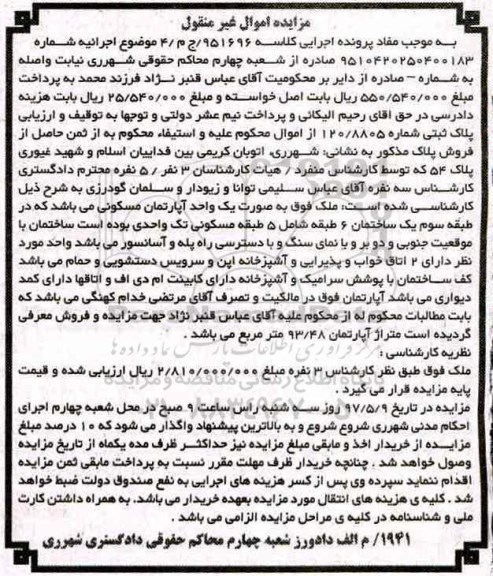 مزایده اموال غیر منقول
به موجب مفاد پرونده اجرایی کلاسه ۹۵۱۶۹۶/ج م/۴ موضوع اجرائیه شماره
۹۵۱۰۴۲۰۲۵۰۴۰۰۱۸۳ صادره از شعبه چهارم محاکم حقوقی شهرری نیابت واصله
به شماره – صادره از دایر بر محکومیت آقای عباس قنبر نژاد فرزند محمد به پرداخت
مبلغ ۵۵۰/۵۴۰/۰۰۰ ریال بابت اصل خواسته و مبلغ ۲۵/۵۴۰/۰۰۰ ریال بابت هزینه
دادرسی در حق اقای رحیم الیکائی و پرداخت نیم عشر دولتی و توجها به توقیف و ارزیابی
پلاک ثبتی شماره ۱۲۰/۸۸۰۵ از اموال محکوم علیه و استیفاء محکوم به از ثمن حاصل از
فروش پلاک مذکور به نشانی: شهرری، اتوبان کریمی بین فداییان اسلام و شهید غیوری
پلاک ۵۴ که توسط کارشناس منفرد / هیات کارشناسان ۳ نفر / ۵ نفره محترم دادگستری
کارشناس سه نفره آقای عباس سلیمی توانا و زیودار و سلمان گودرزی به شرح ذیل
کارشناسی شده است: ملک فوق به صورت یک واحد آپارتمان مسکونی می باشد که در
طبقه سوم یک ساختمان ۶ طبقه شامل ۵ طبقه مسکونی تک واحدی بوده است ساختمان با
موقعیت جنوبی و دو بر و با نمای سنگ و با دسترسی راه پله و آسانسور می باشد واحد مورد
نظر دارای ۲ اتاق خواب و پذیرایی و آشپزخانه اپن و سرویس دستشویی و حمام می باشد
کف ساختمان با پوشش سرامیک و آشپزخانه دارای کابینت ام دی اف و اتاقها دارای کمد
دیواری می باشد آپارتمان فوق در مالکیت و تصرف آقای مرتضی خدام کهنگی می باشد که
بابت مطالبات محکوم له از محکوم علیه آقای عباس قنبر نژاد جهت مزایده و فروش معرفی
گردیده است متراژ آپارتمان ۹۳/۴۸ متر مربع می باشد .
نظریه کارشناسی :
ملک فوق طبق نظر کارشناس ۳ نفره مبلغ ۲/۸۱۰/۰۰۰/۰۰۰ ریال ارزیابی شده و قیمت
پایه مزایده قرار می گیرد .
مزایده در تاریخ ۹۷/۵/۹ روز سه شنبه راس ساعت ۹ صبح در محل شعبه چهارم اجرای
احکام مدنی شهرری شروع شروع و به بالاترین پیشنهاد واگذار می شود که ۱۰ درصد مبلغ
مزایده از خریدار اخذ و مابقی مبلغ مزایده نیز حداکثر ظرف مدت یکماه از تاریخ مزایده
وصول خواهد شد . چنانچه خریدار ظرف مهلت مقرر نسبت به پرداخت مابقی ثمن مزایده
اقدام ننماید سپرده وی پس از کسر هزینه های اجرایی به نفع صندوق دولت ضبط خواهد
شد . کلیه ی هزینه های انتقال مورد مزایده بعهده خریدار می باشد. به همراه داشتن کارت
ملی و شناسنامه در کلیه ی مراحل مزایده الزامی می باشد .
۱۹۴۱/ م الف دادورز شعبه چهارم محاکم حقوقی دادگستری شهرری